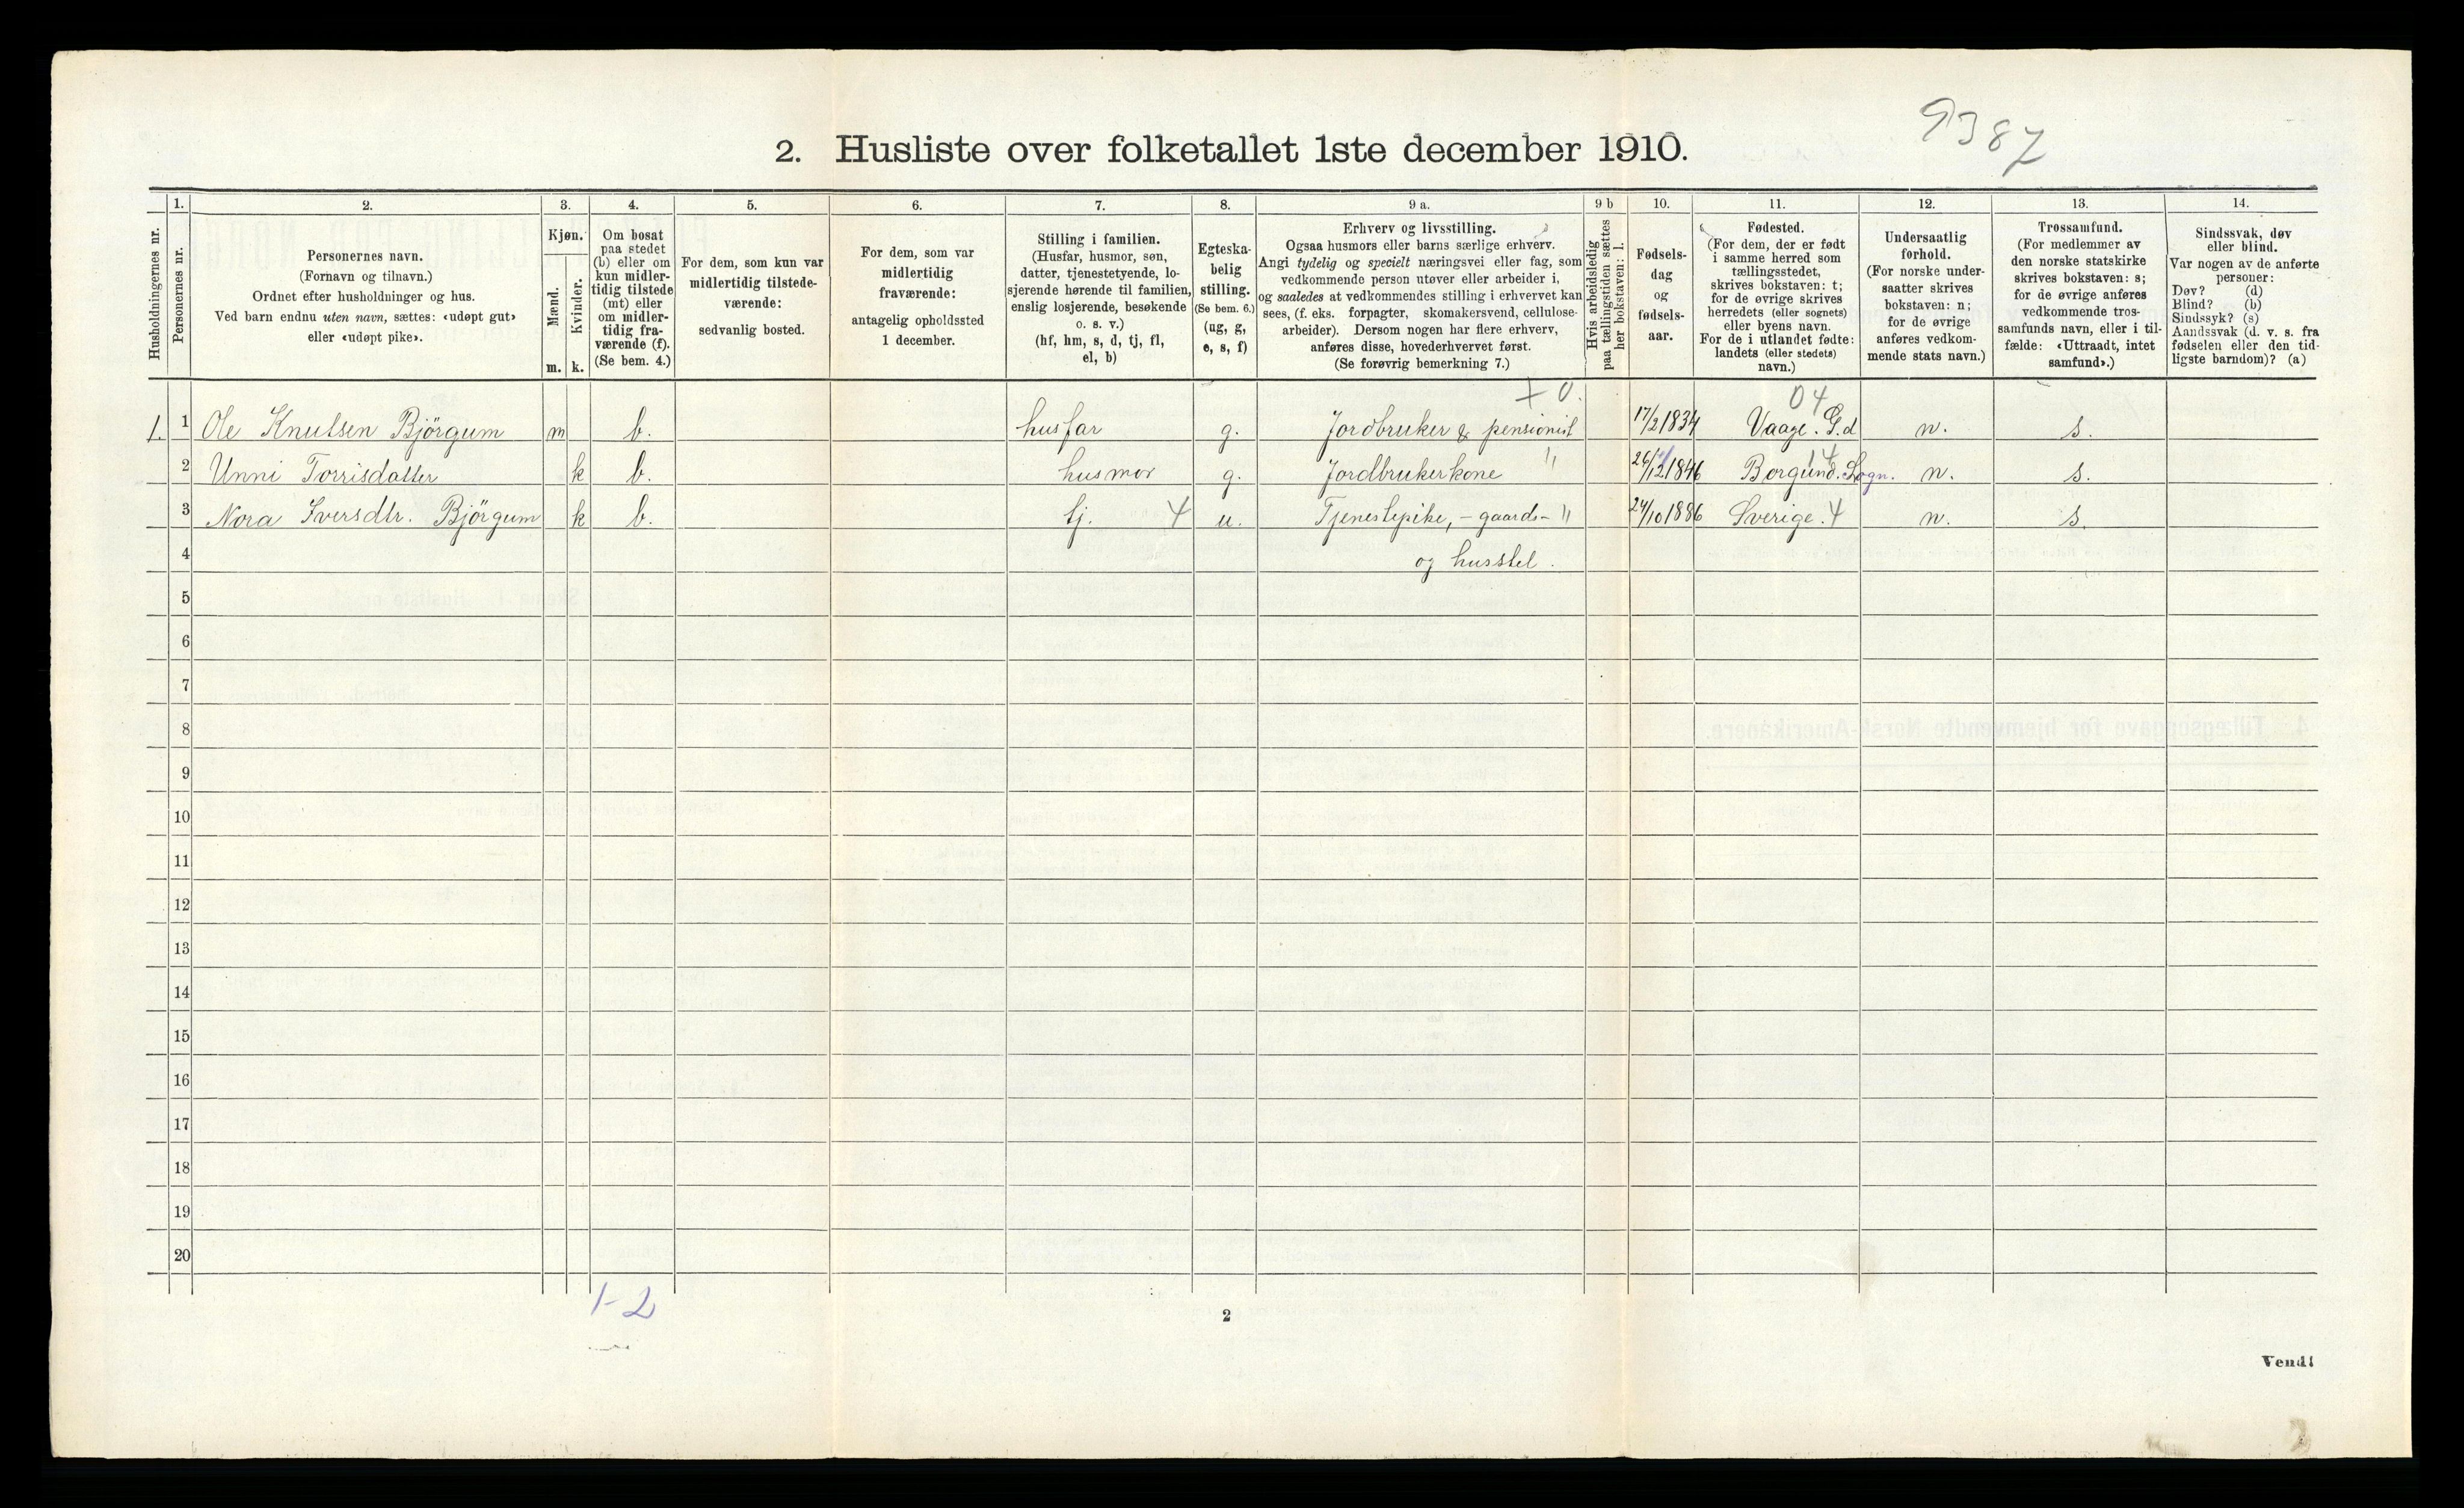 9387
2. Husliste over folketallet 1ste december 1910.
Husholdningernes nr.
1.
Personernes nr.
2.
Personernes navn.
(Fornavn og tilnavn.)
Ordnet efter husholdninger og hus.
Ved barn endnu uten navn, sættes: «udøpt gut»
eller «udøpt pike».
3.
Kjøn.
Mænd.
m.
Kvinder.
k.
4.
Om bosat
paa stedet
(b) eller om
kun midler-
tidig tilstede
(mt) eller
om midler-
tidig fra-
værende (f).
(Se bem. 4.)
5.
For dem, som kun var
midlertidig tilstede-
værende:
sedvanlig bosted.
6.
For dem, som var
midlertidig
fraværende:
antagelig opholdssted
1 december.
7.
Stilling i familien.
(Husfar, husmor, søn,
datter, tjenestetyende, lo-
sjerende hørende til familien,
enslig losjerende, besøkende
o. s. v.)
(hf, hm, s, d, tj, fl,
el, b)
8.
Egteska-
belig
stilling.
(Se bem. 6.)
(ug, g,
e, s, f)
9 a.
Erhverv og livsstilling.
Ogsaa husmors eller barns særlige erhverv.
Angi tydelig og specielt næringsvei eller fag, som
vedkommende person utøver eller arbeider i,
og saaledes at vedkommendes stilling i erhvervet kan
sees, (f. eks. forpagter, skomakersvend, cellulose-
arbeider). Dersom nogen har flere erhverv,
anføres disse, hovederhvervet først.
(Se forøvrig bemerkning 7.)
9 b
Hvis arbeidsledig
paa tællingstiden sættes
her bokstaven: l.
10.
Fødsels-
dag
og
fødsels-
aar.
11.
Fødested.
(For dem, der er født
i samme herred som
tællingsstedet,
skrives bokstaven: t;
for de øvrige skrives
herredets (eller sognets)
eller byens navn.
For de i utlandet fødte:
landets (eller stedets)
navn.)
12.
Undersaatlig
forhold.
(For norske under-
saatter skrives
bokstaven: n;
for de øvrige
anføres vedkom-
mende stats navn.)
13.
Trossamfund.
(For medlemmer av
den norske statskirke
skrives bokstaven: s;
for de øvrige anføres
vedkommende tros-
samfunds navn, eller i til-
fælde: «Uttraadt, intet
samfund».)
14.
Sindssvak, døv
eller blind.
Var nogen av de anførte
personer:
Døv? (d)
Blind? (b)
Sindssyk? (s)
Aandssvak (d. v. s. fra
fødselen eller den tid-
ligste barndom)? (a)
04
1. 1 Ole Knutsen Bjørgum m b. husfar g. Jordbruker & pensionist 17/2 1834 Vaage. G.d n. s.
14
2 Unni Torrisdatter k b. husmor g. Jordbrukerkone " 26/12 1846 Borgund. Sogn. n. s.
3 Nora Iversdtr. Bjørgum k b. tj. 4 u. Tjenestepike, - gaards- " 24/10 1886 Sverige. 4 n. s.
4 og husstel.
5
6
7
8
9
10
11
12
13
14
15
16
17
18
19
20
1-2
2
Vend!